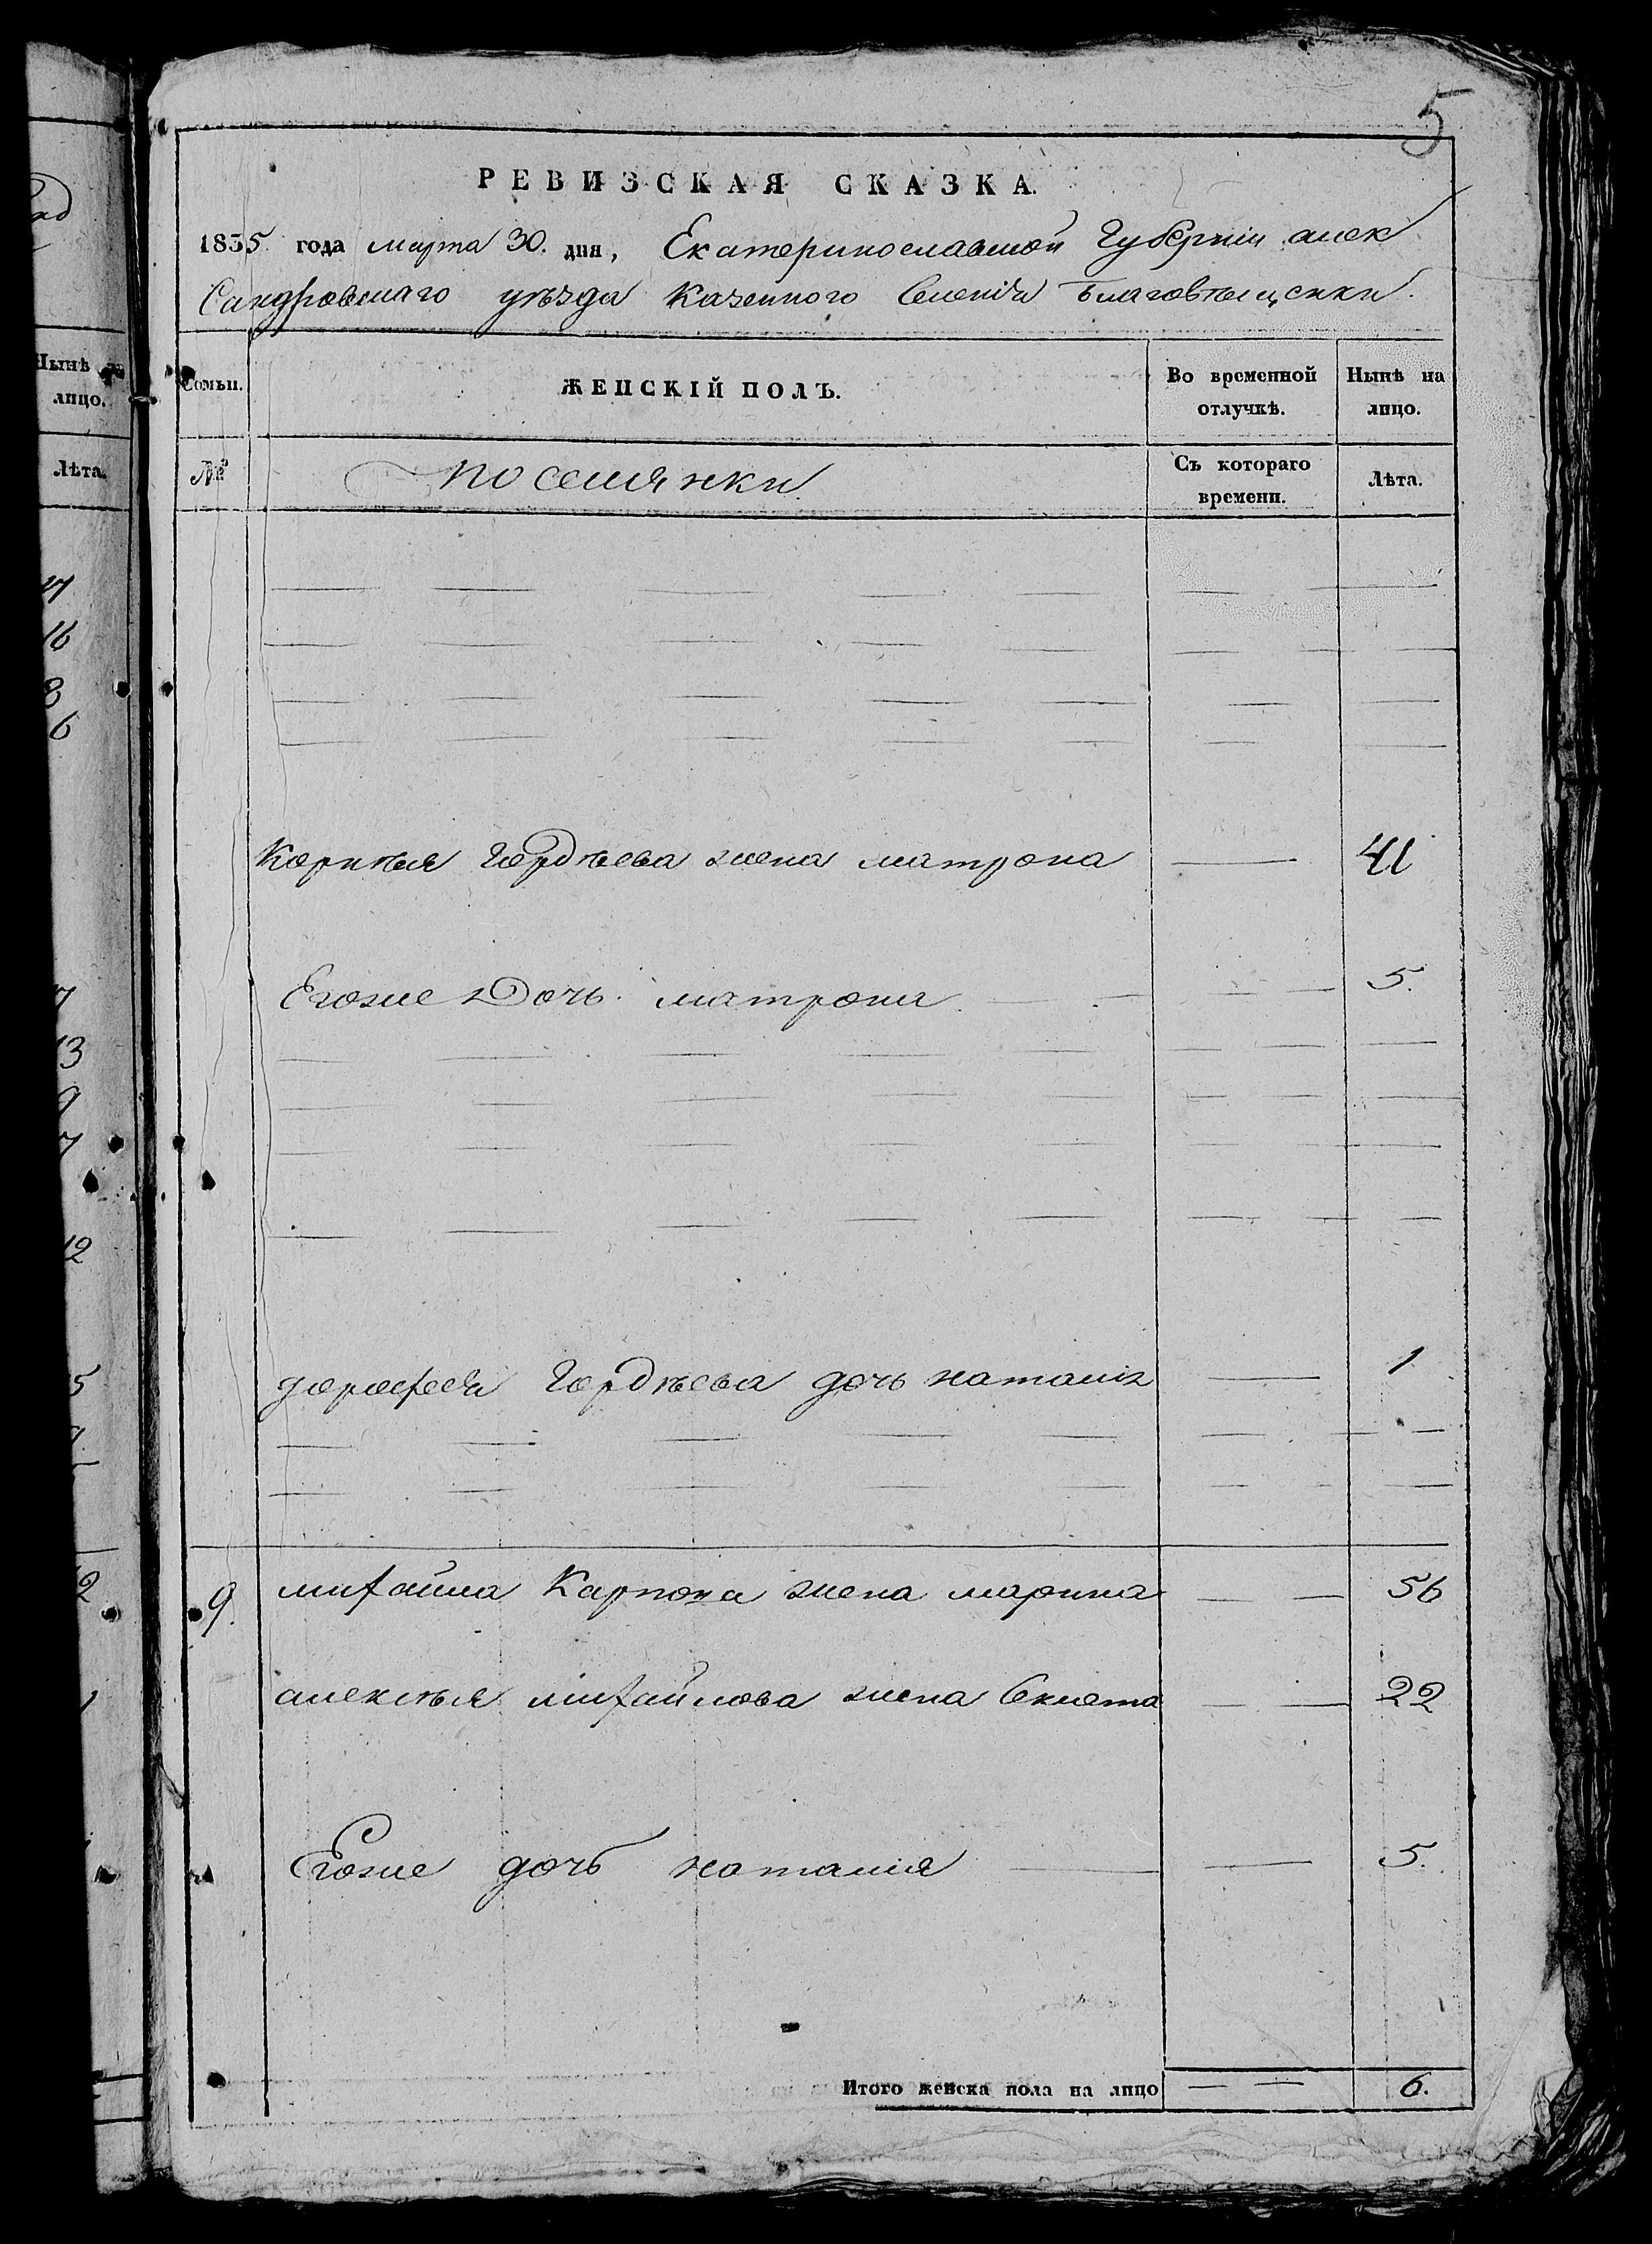 5
РЕВИЗСКАЯ СКАЗКА.
1835 года марта 30. дня, Екатеринославской Губерніи алек
Сандровскаго уѣзда Казенного Селенія Благовѣщенки.
Семьи. ЖЕНСКІЙ ПОЛЪ. Во временной отлучкѣ. Нынѣ на лицо.
№ поселянки Съ котораго времени. Лѣта.
Корнѣя Гордѣева жена матрона — 41
Егоже Дочь матрона — 5.
дорофея Гордѣева дочь наталія — 1
9. михайла Карпова жена марина — 56
алексѣя михайлова жена Феклета — 22
Егоже дочь наталия — 5.
Итого женска пола на лицо — 6.
Нынѣ на
лицо.
Лѣта.
16
8
6
7
13
9
7
12
5